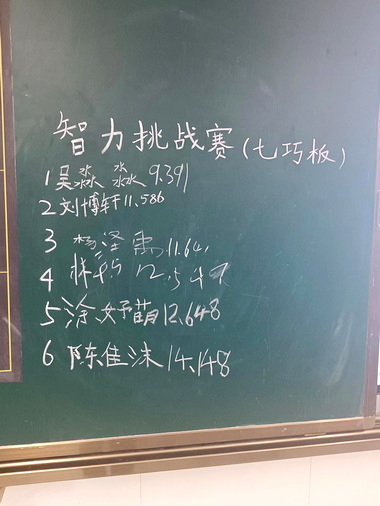 智力挑战赛(七巧板)
1吴淼淼 9.391
2刘博轩11.586
3 杨泽禹11.641
4 12.547
5涂妤萌12.648
6 陈佳沫14.148